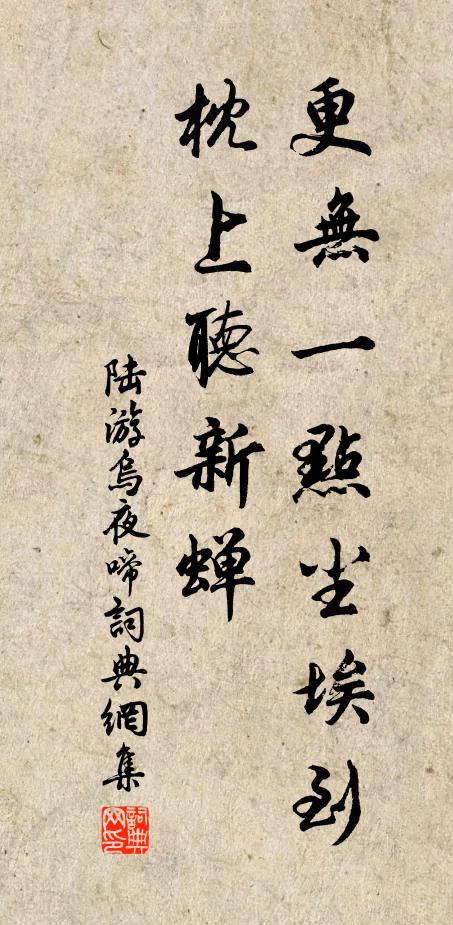 更無一點尘埃到
枕上聽新蝉
陆游烏夜啼詞典網集
詞典网印